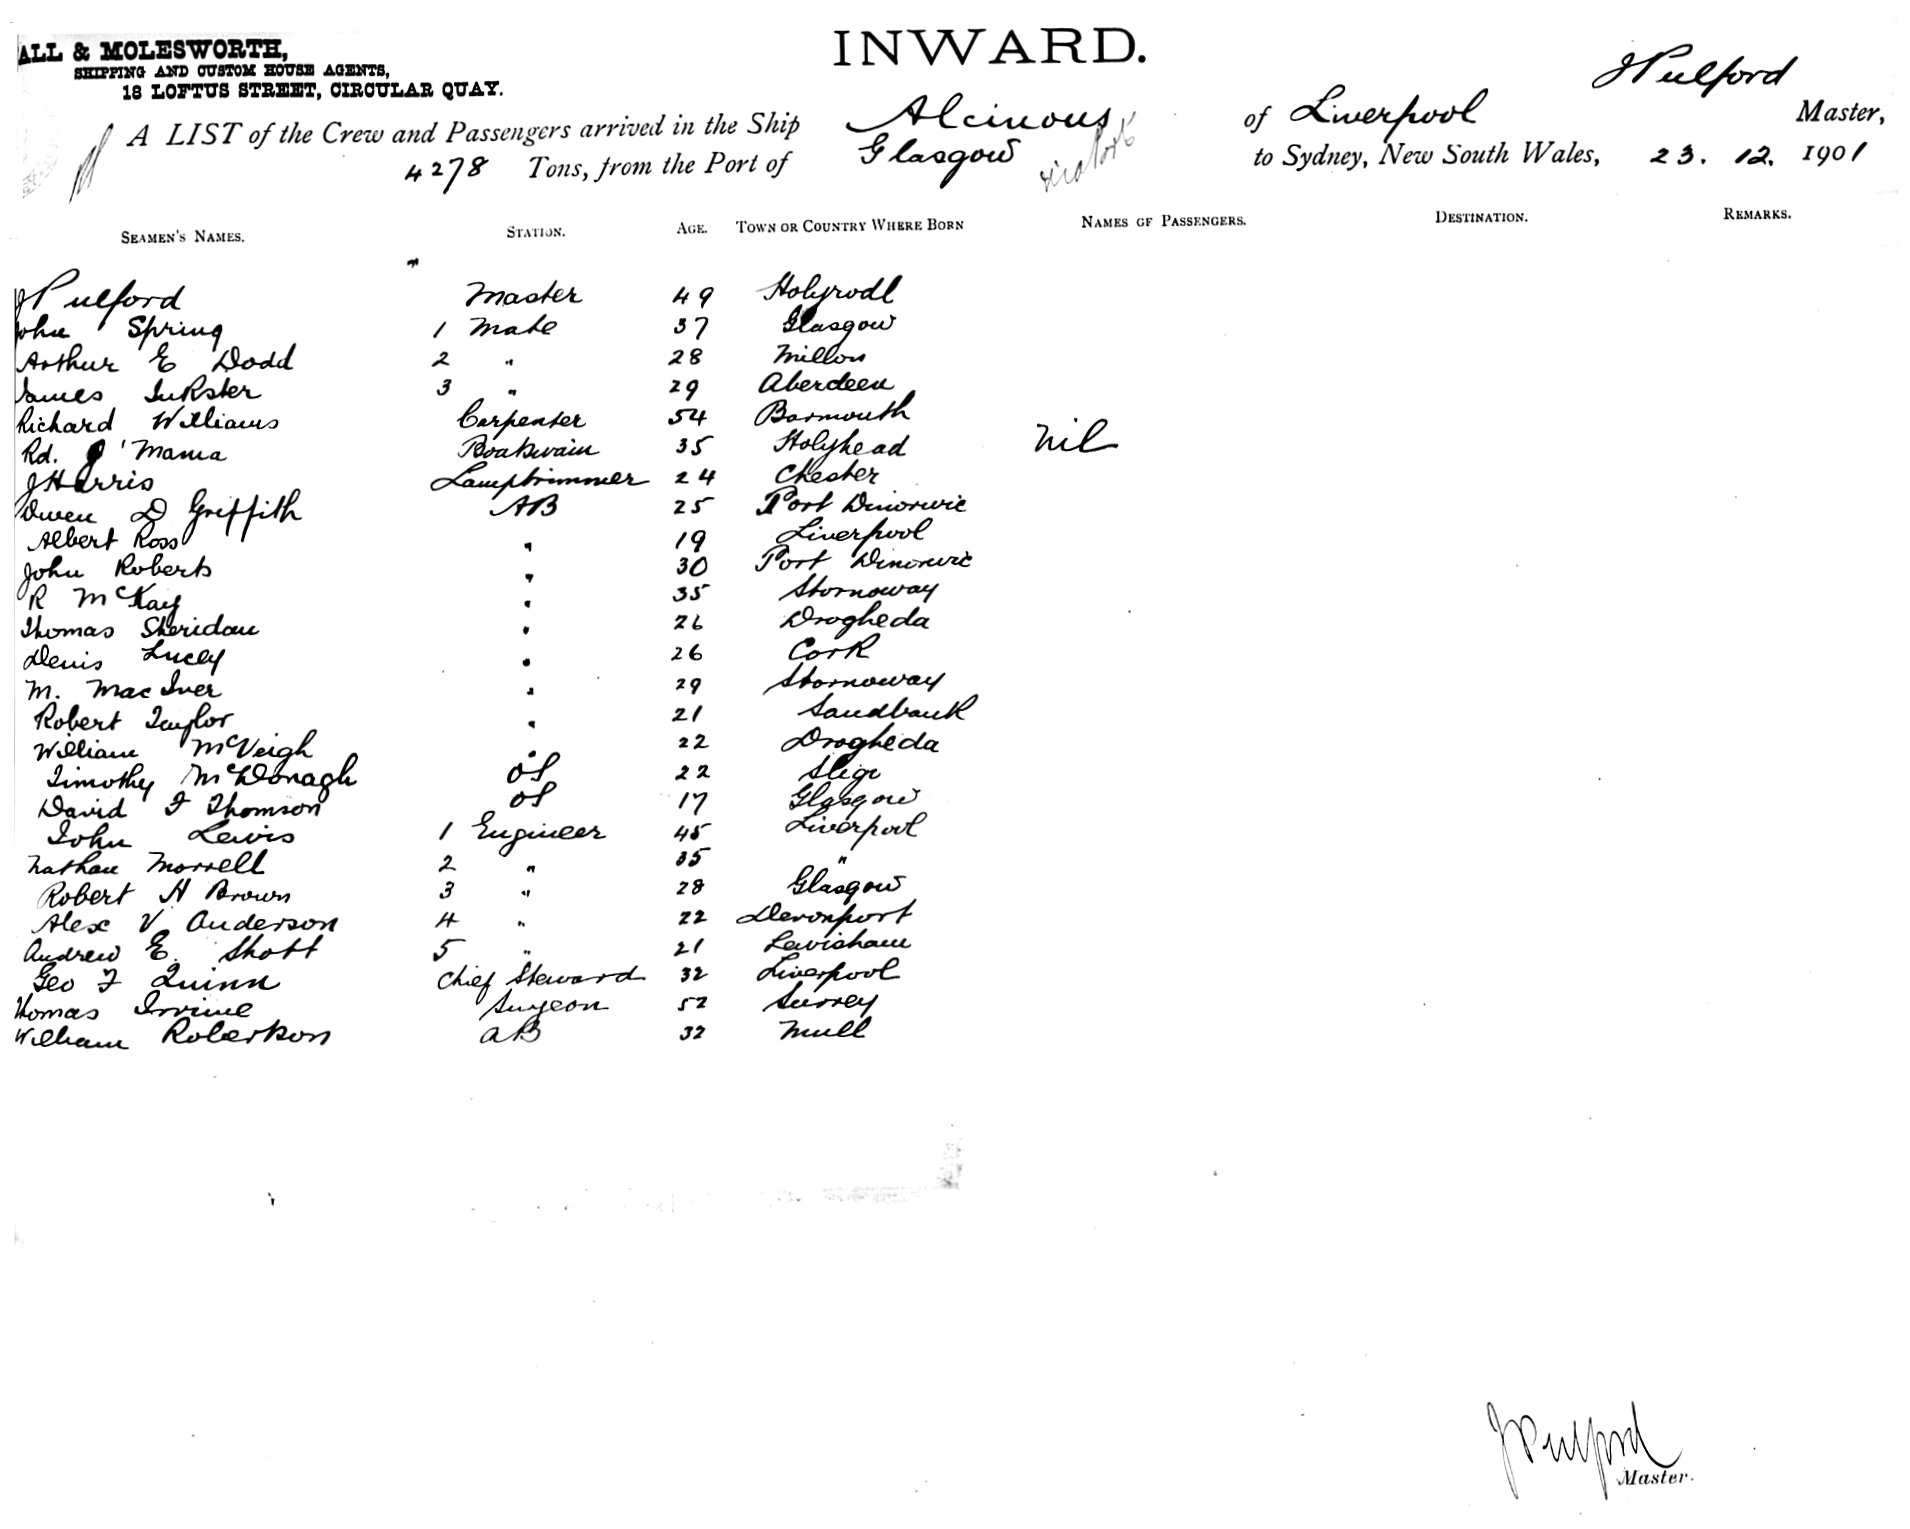 ALL & MOLESWORTH,
SHIPPING AND CUSTOM HOUSE AGENTS,
18 LOFTUS STREET, CIRCULAR QUAY.
INWARD.
J Pulford
A LIST of the Crew and Passengers arrived in the Ship Alcinous of Liverpool Master,
4278 Tons, from the Port of Glasgow to Sydney, New South Wales, 23. 12. 1901
SEAMEN'S NAMES. STATION. AGE. TOWN OR COUNTRY WHERE BORN NAMES OF PASSENGERS. DESTINATION. REMARKS.
J Pulford Master 49
John Spring 1 Mate 37 Glasgow
Arthur E Dodd 2 " 28 Millom
James Inkster 3 " 29 Aberdeen
Richard Williams Carpenter 54 Barmouth
Rd. Mama Boatswain 35 Holyhead Nil
J Harris Lamptrimmer 24 Chester
Owen D Griffith AB 25 Port Dinorwic
Albert Ross " 19 Liverpool
John Roberts " 30 Port Dinorwic
R McKay " 35 Stornoway
Thomas Sheridan " 26 Drogheda
Denis Lucey " 26 Cork
M. MacIver " 29 Stornoway
Robert Taylor " 21 Sandbank
William McVeigh " 22 Drogheda
Timothy McDonagh OS 22 Sligo
David F Thomson OS 17 Glasgow
John Lewis 1 Engineer 45 Liverpool
Nathan Morrell 2 " 35 "
Robert H Brown 3 " 28 Glasgow
Alex V Anderson 4 " 22 Devonport
Andrew E. Shott 5 " 21 Lewisham
Geo F Quinn Chief Steward 32 Liverpool
Thomas Irvine Surgeon 52 Surrey
William Robertson AB 32 Mull
J Pulford
Master.